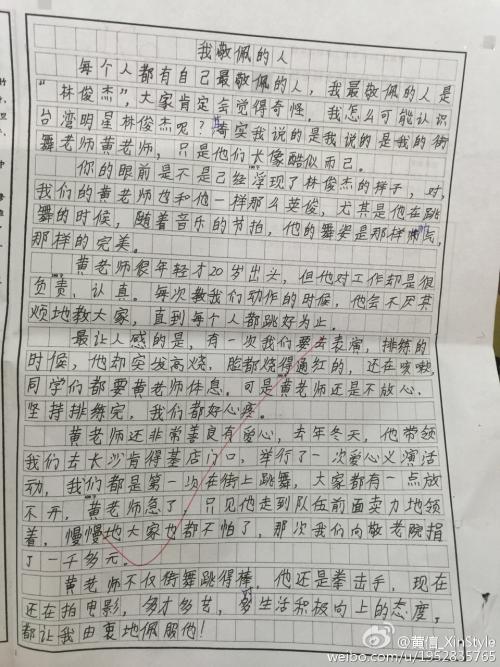 我敬佩的人
每个人都有自己最敬佩的人，我最敬佩的人是
“林俊杰”，大家肯定会觉得奇怪，我怎么可能认识
台湾明星林俊杰呢？其实我说的是我说的是我的街
舞老师黄老师，只是他们太像酷似而已。
你的眼前是不是已经浮现了林俊杰的样子，对，
我们的黄老师也和他一样那么英俊，尤其是他在跳
舞的时候，随着音乐的节拍，他的舞姿是那样
那样的完美。
黄老师很年轻才20岁出头，但他对工作却是很
负责、认真。每次教我们动作的时候，他会不厌其
烦地教大家，直到每个人都跳好为止。
最让人感的是，有一次我们要去表演，排练的
时候，他却突发高烧，脸都烧得通红的，还在咳嗽，
同学们都要黄老师休息。可是黄老师还是不放心，
坚持排练完，我们都好心疼。
黄老师还非常善良有爱心，去年冬天，他带领
我们去长沙肯得基店门口，举行了一次爱心义演活
动，我们都是第一次在街上跳舞，大家都有一点放
不开，黄老师急了，只见他走到队伍前面卖力地领
着，慢慢地大家也都不怕了，那次我们向敬老院捐
了一千多元。
黄老师不仅街舞跳得棒，他还是拳击手，现在
还在拍电影，多才多艺，对生活积极向上的态度，
都让我由衷地佩服他！
@黄信_XinStyle
weibo.com/u/1952835765